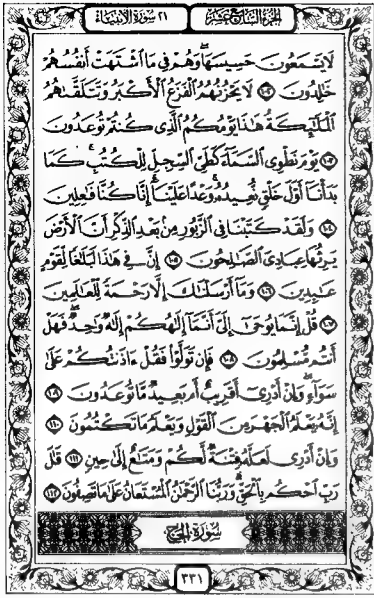 الجزء السابع عشر ٢١ سورة الأنبياء
لَا يَسْمَعُونَ حَسِيسَهَا ۖ وَهُمْ فِى مَا ٱشْتَهَتْ أَنفُسُهُمْ
خَٰلِدُونَ ١٠٢ لَا يَحْزُنُهُمُ ٱلْفَزَعُ ٱلْأَكْبَرُ وَتَتَلَقَّىٰهُمُ
ٱلْمَلَٰٓئِكَةُ هَٰذَا يَوْمُكُمُ ٱلَّذِى كُنتُمْ تُوعَدُونَ
١٠٣ يَوْمَ نَطْوِى ٱلسَّمَآءَ كَطَىِّ ٱلسِّجِلِّ لِلْكُتُبِ ۚ كَمَا
بَدَأْنَآ أَوَّلَ خَلْقٍ نُّعِيدُهُۥ ۚ وَعْدًا عَلَيْنَآ ۚ إِنَّا كُنَّا فَٰعِلِينَ
١٠٤ وَلَقَدْ كَتَبْنَا فِى ٱلزَّبُورِ مِنۢ بَعْدِ ٱلذِّكْرِ أَنَّ ٱلْأَرْضَ
يَرِثُهَا عِبَادِىَ ٱلصَّٰلِحُونَ ١٠٥ إِنَّ فِى هَٰذَا لَبَلَٰغًا لِّقَوْمٍ
عَٰبِدِينَ ١٠٦ وَمَآ أَرْسَلْنَٰكَ إِلَّا رَحْمَةً لِّلْعَٰلَمِينَ
١٠٧ قُلْ إِنَّمَا يُوحَىٰٓ إِلَىَّ أَنَّمَآ إِلَٰهُكُمْ إِلَٰهٌ وَٰحِدٌ ۖ فَهَلْ
أَنتُم مُّسْلِمُونَ ١٠٨ فَإِن تَوَلَّوْا۟ فَقُلْ ءَاذَنتُكُمْ عَلَىٰ
سَوَآءٍ ۖ وَإِنْ أَدْرِىٓ أَقَرِيبٌ أَم بَعِيدٌ مَّا تُوعَدُونَ ١٠٩
إِنَّهُۥ يَعْلَمُ ٱلْجَهْرَ مِنَ ٱلْقَوْلِ وَيَعْلَمُ مَا تَكْتُمُونَ ١١٠
وَإِنْ أَدْرِى لَعَلَّهُۥ فِتْنَةٌ لَّكُمْ وَمَتَٰعٌ إِلَىٰ حِينٍ ١١١ قَٰلَ
رَبِّ ٱحْكُم بِٱلْحَقِّ ۗ وَرَبُّنَا ٱلرَّحْمَٰنُ ٱلْمُسْتَعَانُ عَلَىٰ مَا تَصِفُونَ ١١٢
سُورَةُ الحَجّ
٣٣١